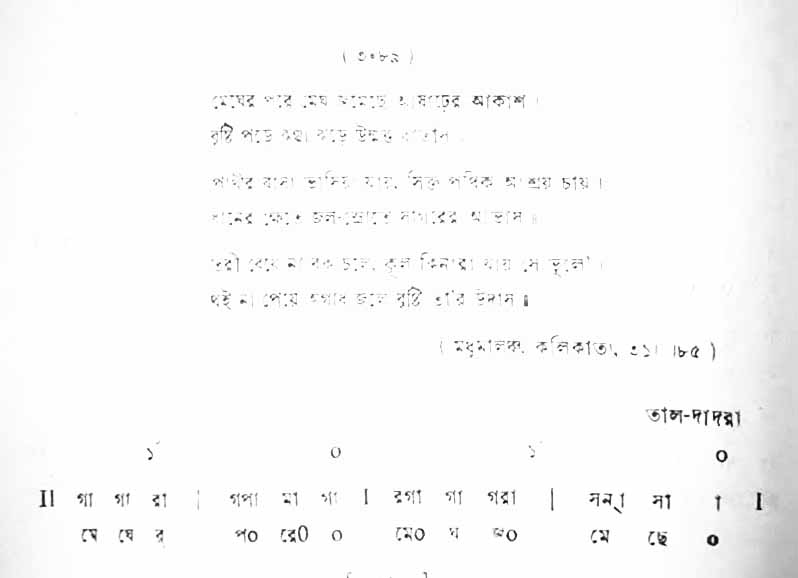 ( ৩০৮৯ )
মেঘের পরে মেঘ জমেছে আষাঢ়ের আকাশ ।
বৃষ্টি পড়ে ঝড়ে উন্মত্ত বাতাস
পাখীর বাসা ভাসিয়া যায়, সিক্ত পথিক আশ্রয় চায় ।
ধানের ক্ষেতে জল-স্রোতে সাগরের আভাস ॥
তরী বেয়ে চলে, কূল কিনারা যায় সে ভুলে' ।
থই না পেয়ে অগাধ জলে দৃষ্টি তা'র উদাস ॥
( মধুমালঞ্চ, কলিকাতা, ৮৫ )
তাল-দাদরা
১´ ০ ১´ ০
II গা গা রা | গপা মা গা I রগা গা গরা | সন্‌া সা া I
মে ঘে র্ প০ রে০ ০ মে০ ঘ জ০ মে ছে ০